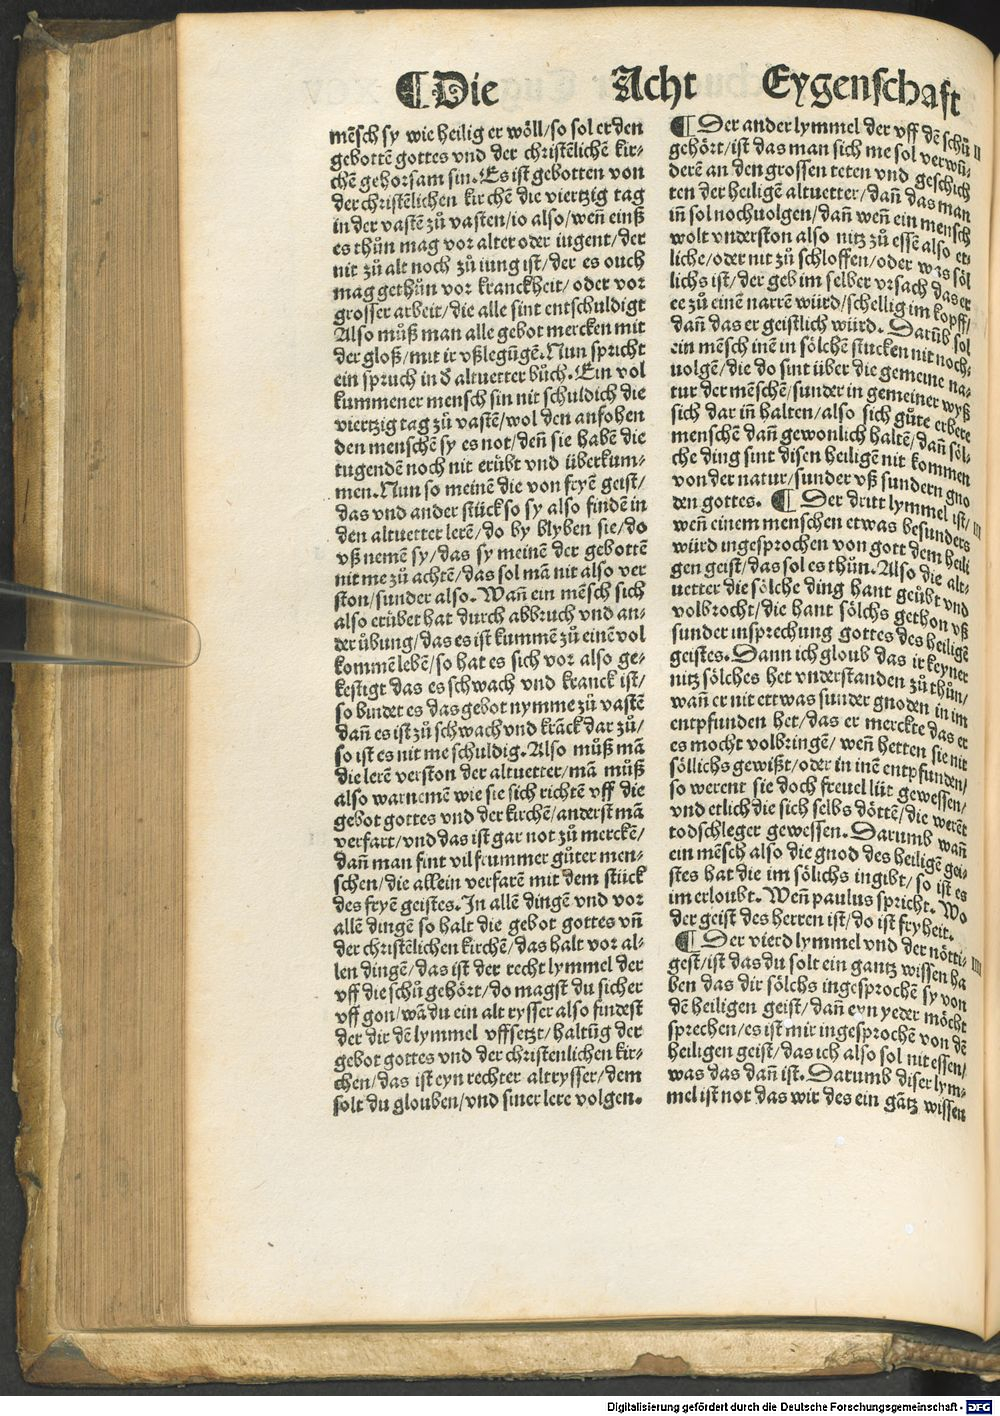 ¶Die Acht Eygenschaft
mẽsch sy wie heilig er wöll/so sol er den
gebottẽ gottes vnd der christẽlichẽ kir-
chẽ gehorsam sin. Es ist gebotten von
der christẽlichen kirchẽ die viertzig tag
in der vastẽ zů vasten/io also/weñ einß
es thůn mag vor alter oder iugent/der
nit zů alt noch zů iung ist/der es ouch
mag gethůn vor kranckheit/oder vor
grosser arbeit/die alle sint entschuldigt
Also můß man alle gebot mercken mit
der gloß/mit ir vßlegũgẽ. Nun spricht
ein spruch in ð altuetter bůch. Ein vol
kummener mensch sin nit schuldich die
viertzig tag zů vastẽ/wol den anfoben
den menschẽ sy es not/deñ sie habẽ die
tugendẽ noch nit erůbt vnd überkum-
men. Nun so meinẽ die von fryẽ geist/
das vnd ander stück so sy also findẽ in
den altuetter lerẽ/do by blyben sie/do
vß nemẽ sy/das sy meinẽ der gebottẽ
nit me zů achtẽ/das sol mã nit also ver
ston/sunder also. Wañ ein mẽsch sich
also erübet hat durch abbruch vnd an-
der übung/das es ist kummẽ zů einẽ vol
kommẽ lebẽ/so hat es sich vor also ge-
kestigt das es schwach vnd kranck ist/
so bindet es das gebot nymme zů vastẽ
dañ es ist zů schwach vnd krãck dar zů/
so ist es nit me schuldig. Also můß mã
die lerẽ verston der altuetter/mã můß
also warnemẽ wie sie sich richtẽ vff die
gebot gottes vnd der kirchẽ/anderst mã
verfart/vnd das ist gar not zů merckẽ/
dañ man fint vil frummer gůter men-
schen/die allein verfarẽ mit dem stück
des fryẽ geistes. In allẽ dingẽ vnd vor
allẽ dingẽ so halt die gebot gottes vñ
der christẽlichen kirchẽ/das halt vor al-
len dingẽ/das ist der recht lymmel der
vff die schů gehört/do magst du sicher
vff gon/wãdu ein alt rysser also findest
der dir dẽ lymmel vffsetzt/haltũg der
gebot gottes vnd der christenlichen kir-
chen/das ist eyn rechter altrysser/dem
solt du glouben/vnd siner lere volgen.
¶ Der ander lymmel der vff dẽ schů II
gehört/ist das man sich me sol verwũ-
derẽ an den grossen teten vnd geschich
ten der heiligẽ altuetter/dañ das man
iñ sol nochuolgen/dañ weñ ein mensch
wolt vnderston also nitz zů essẽ also et-
liche/oder nit zů schloffen/oder was söl
lichs ist/der geb im selber vrsach das er
ee zů einẽ narrẽ würd/schellig im kopff/
dañ das er geistlich würd. Darũb sol
ein mẽsch inẽ in sölchẽ stucken nit noch-
uolgẽ/die do sint über die gemeine na-
tur der mẽschẽ/sunder in gemeiner wyß
sich dar iñ halten/also sich gůte erbere
menschẽ dañ gewonlich haltẽ/dañ söl-
che ding sint disen heiligẽ nit kommen
von der natur/sunder vß sundern gno
den gottes. ¶ Der dritt lymmel ist/ III
weñ einem menschen etwas besunders
würd ingesprochen von gott dem heili
gen geist/das sol es thůn. Also die alt-
uetter die sölche ding hant geübt vnd
volbrocht/die hant sölchs gethon vß
sunder insprechung gottes des heiligẽ
geistes. Dann ich gloub das ir keyner
nitz sölches het vnderstanden zů thůn/
wañ er nit ettwas sunder gnoden in im
entpfunden het/das er merckte das er
es mocht volbringẽ/weñ hetten sie nit
söllichs gewißt/oder in inẽ entpfunden/
so werent sie doch freuel lüt gewessen/
vnd etlich die sich selbs dötten/die werẽt
todschleger gewessen. Darumb wañ
ein mẽsch also die gnod des heiligẽ gei-
stes hat die im sölichs ingibt/so ist es
im erloubt. Weñ paulus spricht. Wo
der geist des herren ist/do ist fryheit.
¶ Der vierd lymmel vnd der nötti- IIII
gest/ist das du solt ein gantz wissen ha
ben das dir sölchs ingesprochẽ sy von
dẽ heiligen geist/dañ eyn yeder möcht
sprechen/es ist mir ingesprochẽ von dẽ
heiligen geist/das ich also sol nit essen/
was das dañ ist. Darumb diser lym-
mel ist not das wir des ein gãtz wissen
Digitalisierung gefördert durch die Deutsche Forschungsgemeinschaft - DFG